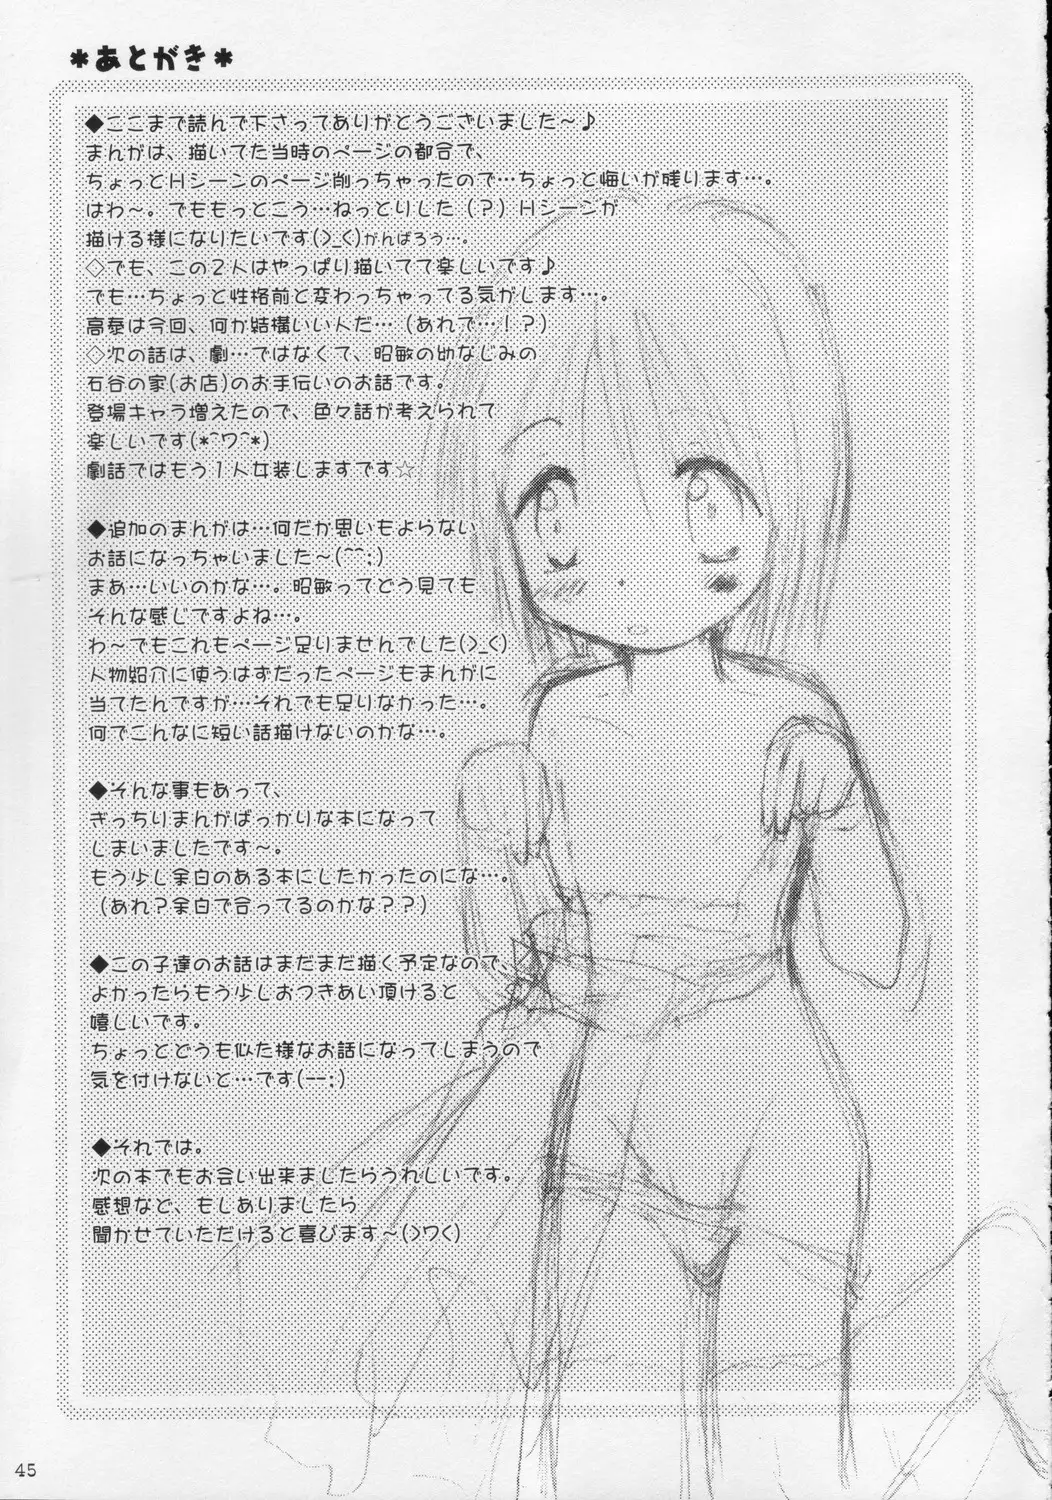 *あとがき*
◆ここまで読んで下さってありがとうございました～♪
まんがは、描いてた当時のページの都合で、
ちょっとHシーンのページ削っちゃったので…ちょっと悔いが残ります…。
はわ～。でももっとこう…ねっとりした(？)Hシーンが
描ける様になりたいです(>_<)がんばろう…。
◇でも、この2人はやっぱり描いてて楽しいです♪
でも…ちょっと性格前と変わっちゃってる気がします…。
高泰は今回、何か結構いい人だ…(あれで…！？)
◇次の話は、劇…ではなくて、昭敏の幼なじみの
石谷の家(お店)のお手伝いのお話です。
登場キャラ増えたので、色々話が考えられて
楽しいです(*^ワ^*)
劇話ではもう1人女装しますです☆
◆追加のまんがは…何だか思いもよらない
お話になっちゃいました～(^^;)
まあ…いいのかな…。昭敏ってどう見ても
そんな感じですよね…。
わ～でもこれもページ足りませんでした(>_<)
人物紹介に使うはずだったページもまんがに
当てたんですが…それでも足りなかった…。
何でこんなに短い話描けないのかな…。
◆そんな事もあって、
ぎっちりまんがばっかりな本になって
しまいましたです～。
もう少し余白のある本にしたかったのにな…。
(あれ？余白で合ってるのかな？？)
◆この子達のお話はまだまだ描く予定なので、
よかったらもう少しおつきあい頂けると
嬉しいです。
ちょっとどうも似た様なお話になってしまうので
気を付けないと…です(--;)
◆それでは。
次の本でもお会い出来ましたらうれしいです。
感想など、もしありましたら
聞かせていただけると喜びます～(>ワ<)
45